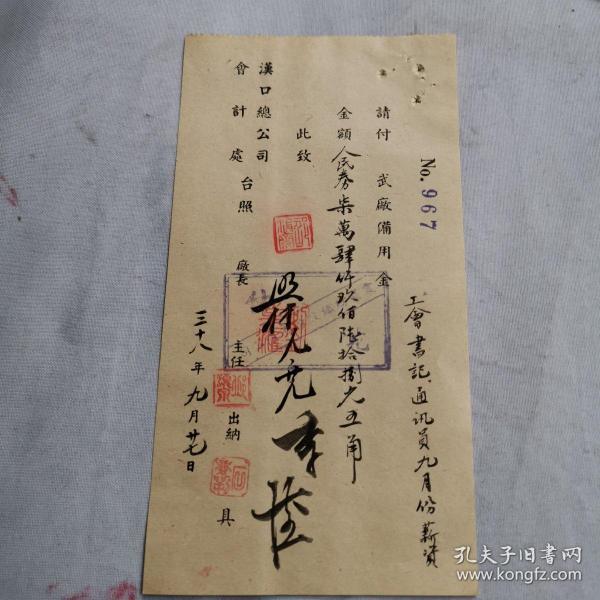 No. 967
工會書記、通訊員九月份薪資
請付 武廠備用金
金額人民券柒萬肆仟玖佰陸拾捌元五角
此致
漢口總公司
會計處 台照
廠長 主任 出納 具
三十八年九月廿七日
孔夫子旧书网
www.kongfz.com